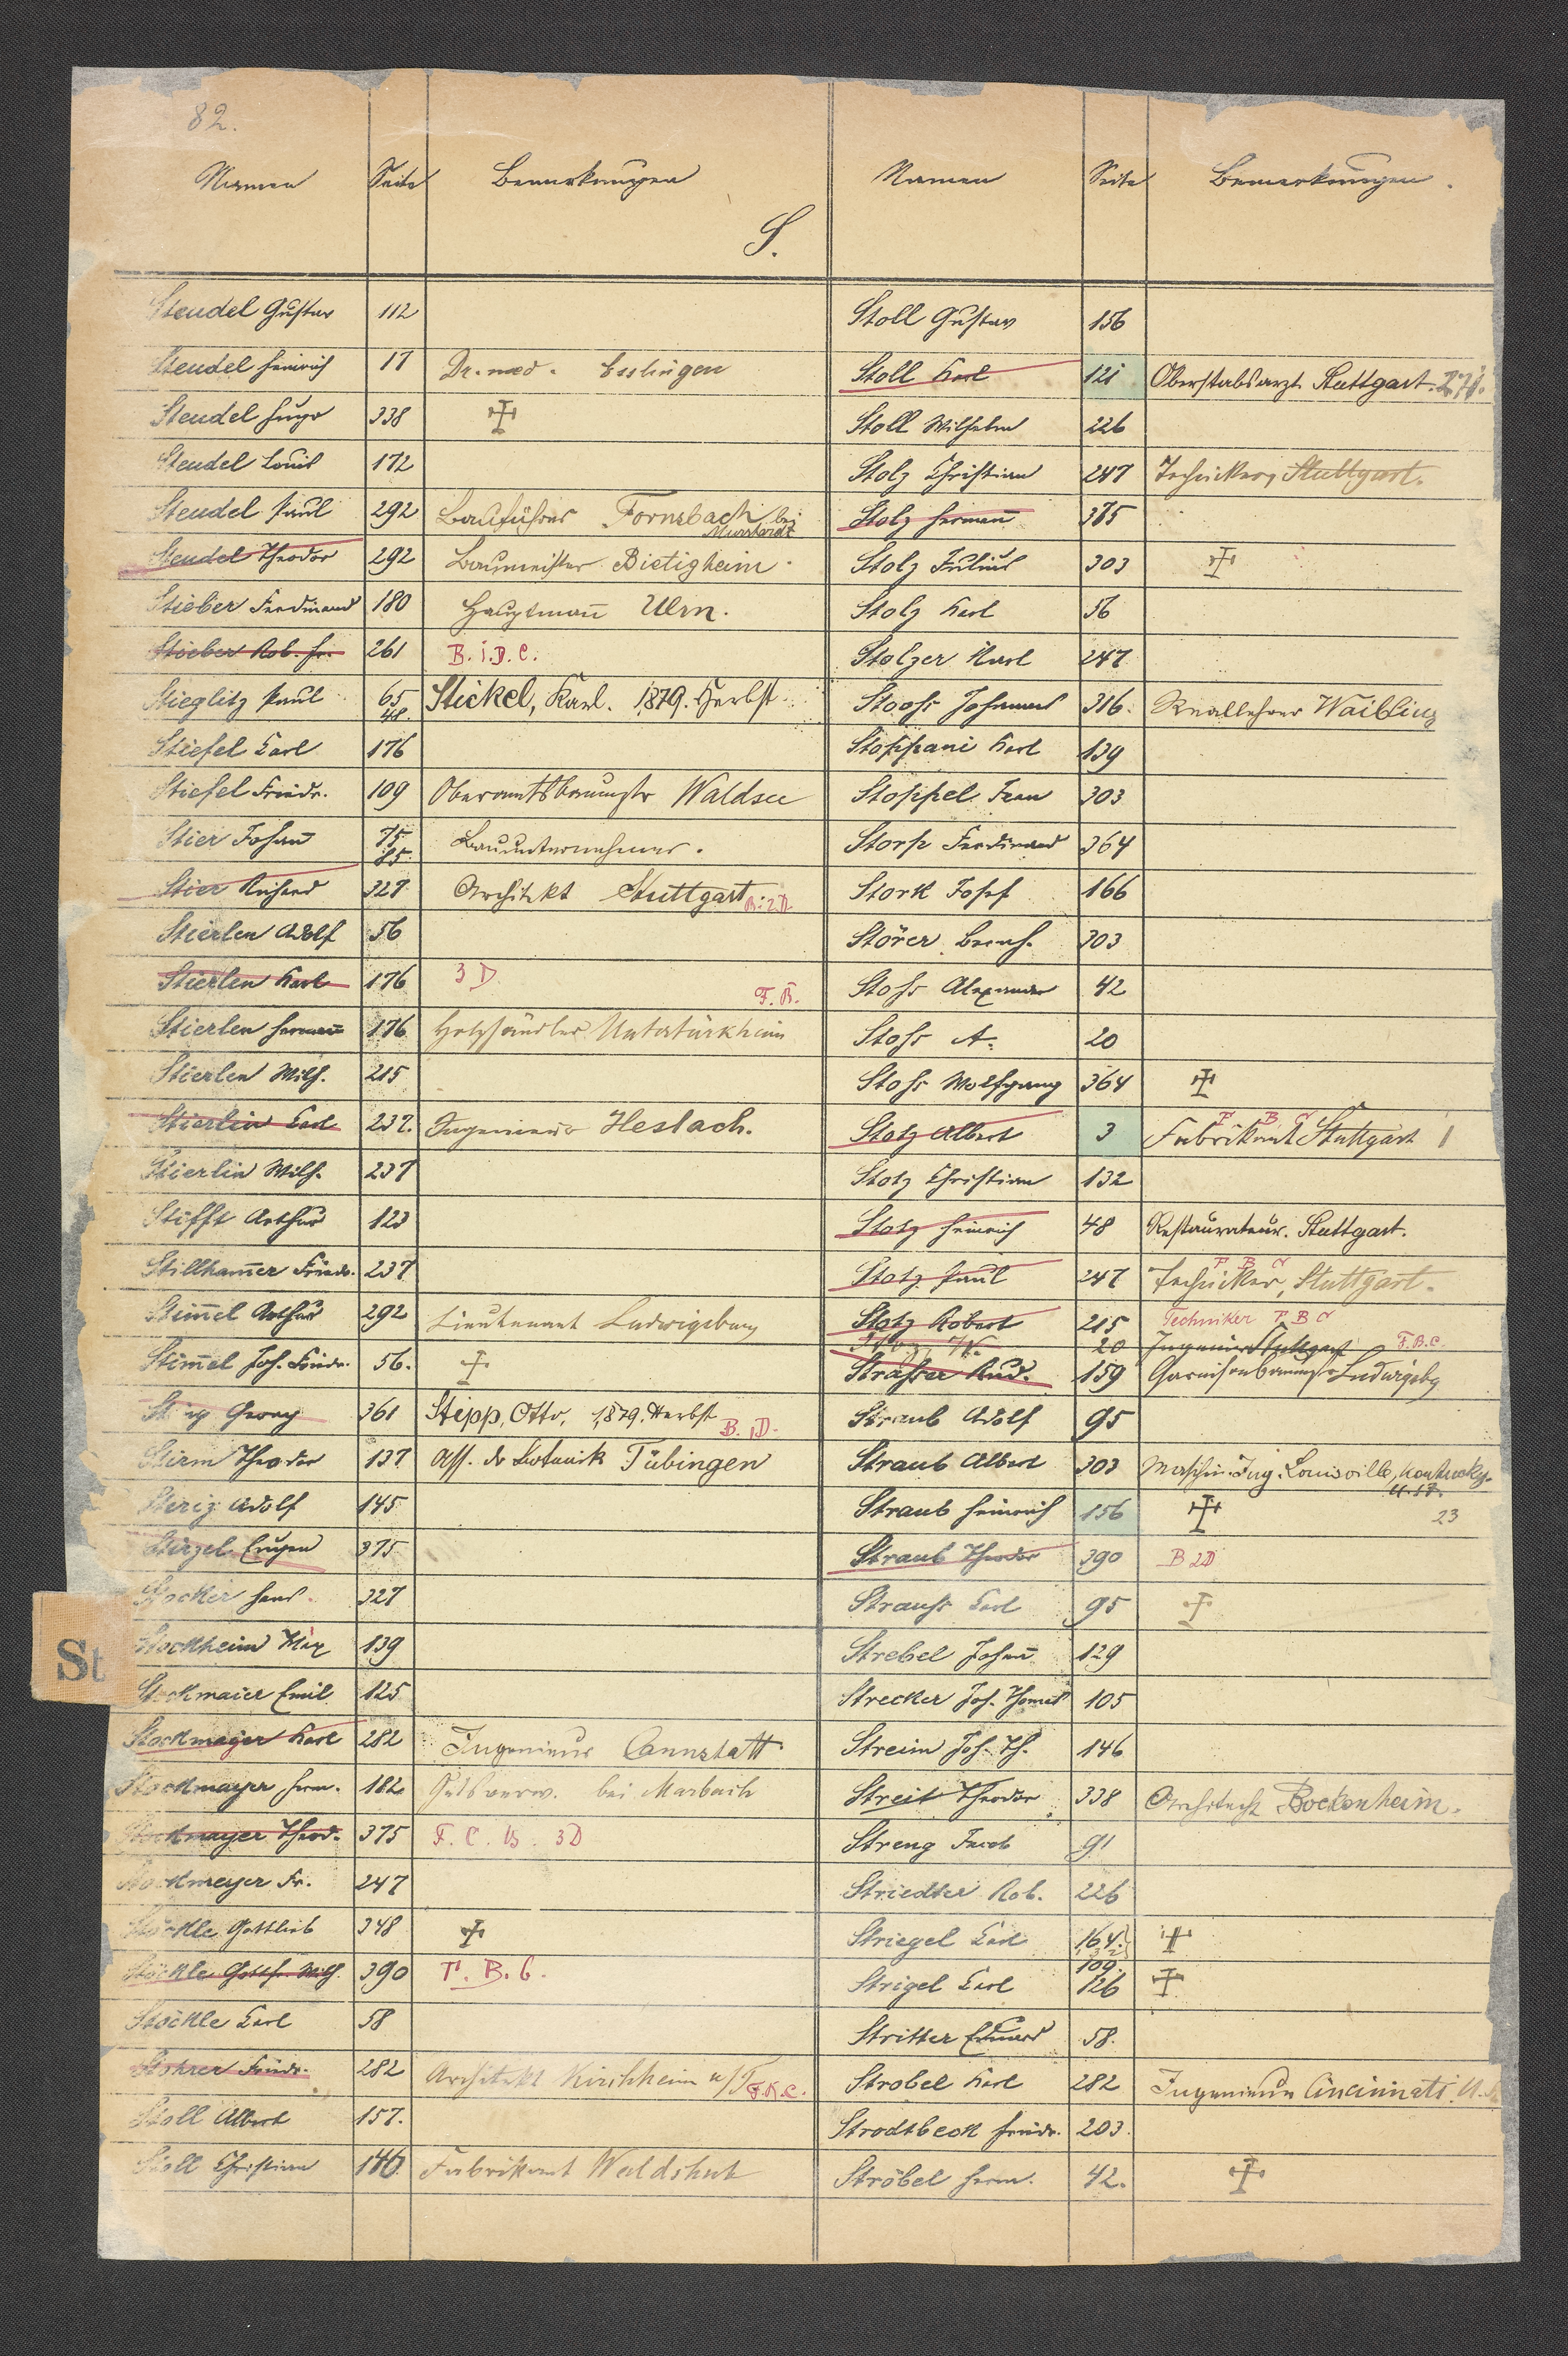 82.
Namen Seite Bemerkungen Namen Seite Bemerkungen
S.
Steudel Gustav 112
Steudel Heinrich 17 Dr. med. Esslingen
Steudel Hugo 338 ☩
Steudel Louis 172
Steudel Paul 292 Bauführer Fornsbach bei Murrhardt
Steudel Theodor 292 Baumeister Bietigheim
Stieber Ferdinand 180 Hauptmañ Ulm.
Stieber Rob. Fr. 261 B. i. D. C.
Stieglitz Paul 65 48. Stickel, Karl. 1879. Herbst
Stiefel Carl 176
Stiefel Friedr. 109 Oberamtsbaumstr Waldsee
Stier Johañ 75 85 Bauunternehmer.
Stier Richard 327 Architekt Stuttgart B. 2D
Stierlen Adolf 56
Stierlen Karl 176 3 D
Stierlen Hermañ 176 Holzhändler Untertürkheim F. B.
Stierlen Wilh. 215
Stierlin Carl 237. Ingenieur Heslach.
Stierlin Wilh. 237
Stifft Arthur 123
Stillham̄er Friedr. 237
Stim̄el Arthur 292 Lieutenant Ludwigsburg
Stim̄el Joh. Friedr. 56. ☩
Georg 361 Stipp, Otto, 1879. Herbst B. 1D.
Stirm Theodor 137 Ass. der Botanik Tübingen
Adolf 145
Stirzel Eugen 375
Stocker Hans. 327
Stockheim Max 139
Stockmaier Emil 125
Stockmayer Karl 282 Ingenieur Cannstatt
Stockmayer Herm. 182 Gutsverw. bei Marbach
Stockmayer Theod. 375 F. C. B. 3D
Stockmeyer Fr. 247
Stöckle Gottlieb 348 ☩
Stöckle Gotth. Wilh. 390 F. B. C.
Stöckle Carl 58
Stohrer Friedr. 282 Architekt Kirchheim u/T F.K.C.
Stoll Albert 157.
Stoll Christian 146. Fabrikant Waldshut
St
Stoll Gustav 156
Stoll Karl 121 Oberstabsarzt Stuttgart. 271.
Stoll Wilhelm 226
Stolz Christian 247 Techniker, Stuttgart.
Stolz Hermañ 385
Stolz Julius 303 ☩
Stolz Karl 56
Stolzer Karl 247
Stooss Johannes 316. Reallehrer Waibling
Stoppani Karl 139
Stoppel Jean 303
Storp Ferdinand 364
Stork Josef 166
Störer Bernh. 303
Stoss Alexander 42
Stoss A. 20
Stoss Wolfgang 364 ☩
Stotz Albert 3 Fabrikant Stuttgart F B C
Stotz Christian 132
Stotz Heinrich 48 Restaurateur. Stuttgart.
Stotz Paul 247 Techniker, Stuttgart. F B C
Stotz Robert 215 Techniker F B C
20 Ingenieur Stuttgart F.B.C.
Strasser Rud. 159 Garnisonbaumstr Ludwigsbg
Straub Adolf 95
Straub Albert 303 Maschin. Ing. Louisville, Kentucky. U.S.A.
Straub Heinrich 156 ☩ 23
Straub Theodor 390 B 2D
Strauss Carl 95 ☩
Strebel Johañ 129
Strecker Joh. Thomas 105
Streim Joh. Th. 146
Streit Theodor 338 Architect Bockenheim.
Streng Jacob 91
Striedter Rob. 226
Striegel Carl 164. ☩
Strigel Carl 109. 126 ☩
Stritter Eduard 58.
Strobel Karl 282 Ingenieur Cincinnati U.
Strodtbeck Friedr. 203.
Ströbel Herm. 42. ☩